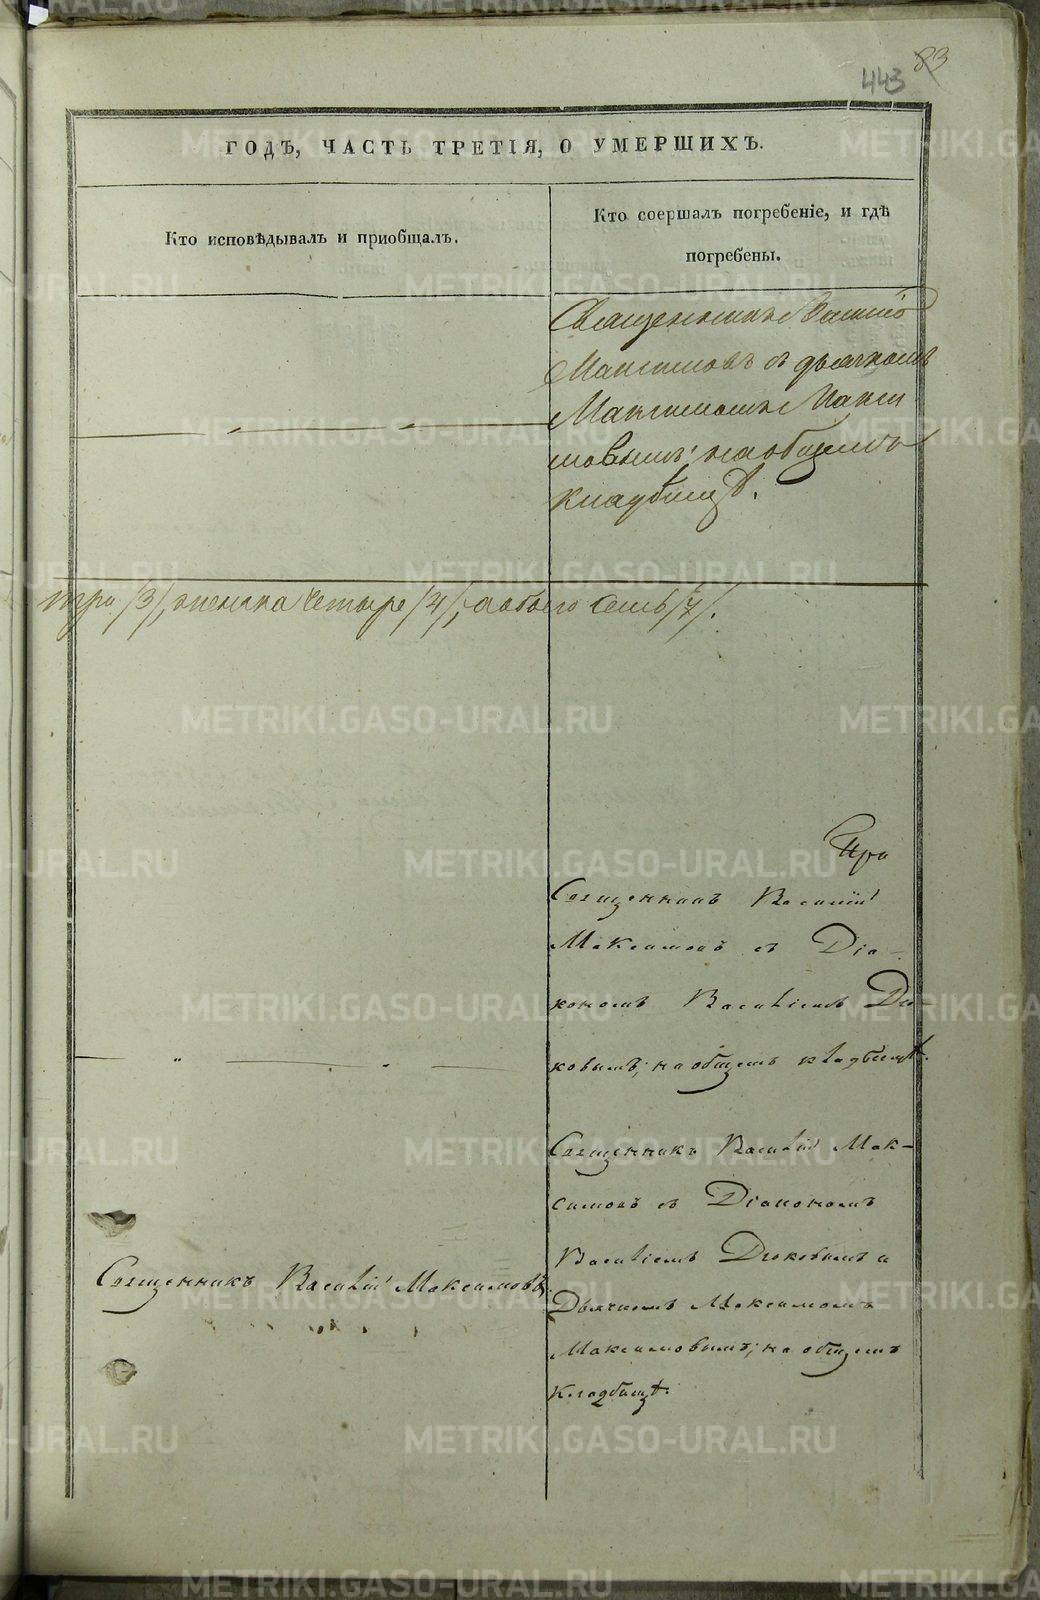 83
443
ГОДЪ, ЧАСТЬ ТРЕТІЯ, О УМЕРШИХЪ.
Кто исповѣдывалъ и пріобщалъ.
Кто соершалъ погребеніе, и гдѣ
погребены.
Священникъ Василій
Максимовъ съ дьячкомъ
Максимомъ Макси
мовымъ; на общемъ
кладбищѣ.
три /3/, женска четыре /4/, а обоего семь /7/.
Священникъ Василій
Максимовъ съ Діа-
кономъ Василіемъ Дю-
ковымъ; на общемъ кладбищѣ.
Священникъ Василій Мак-
симовъ съ Діакономъ
Василіемъ Дюковымъ и
Священникъ Василій Максимовъ.
Дьячкомъ Максимомъ
Максимовымъ; на общемъ
кладбищѣ.
METRIKI.GASO-URAL.RU